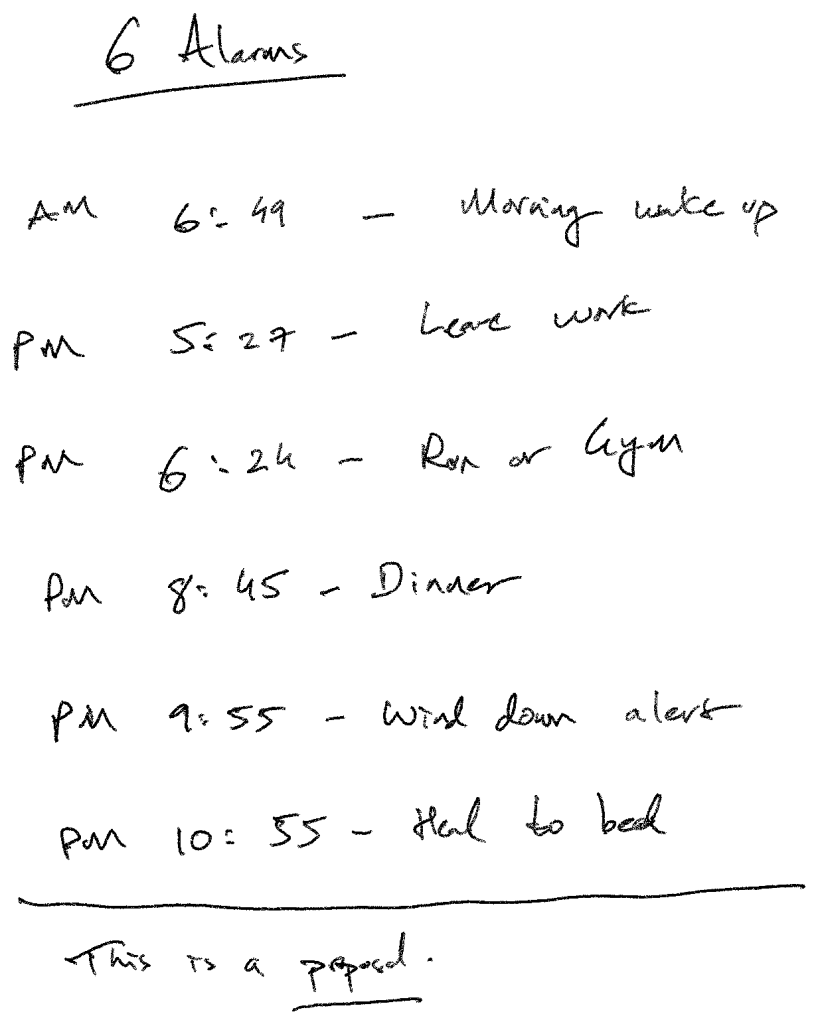 6 Alarms
AM 6:49 - Morning wake up
PM 5:27 - Leave work
PM 6:24 - Run or Gym
PM 8:45 - Dinner
PM 9:55 - Wind down alert
PM 10:55 - Head to bed
This is a proposal.